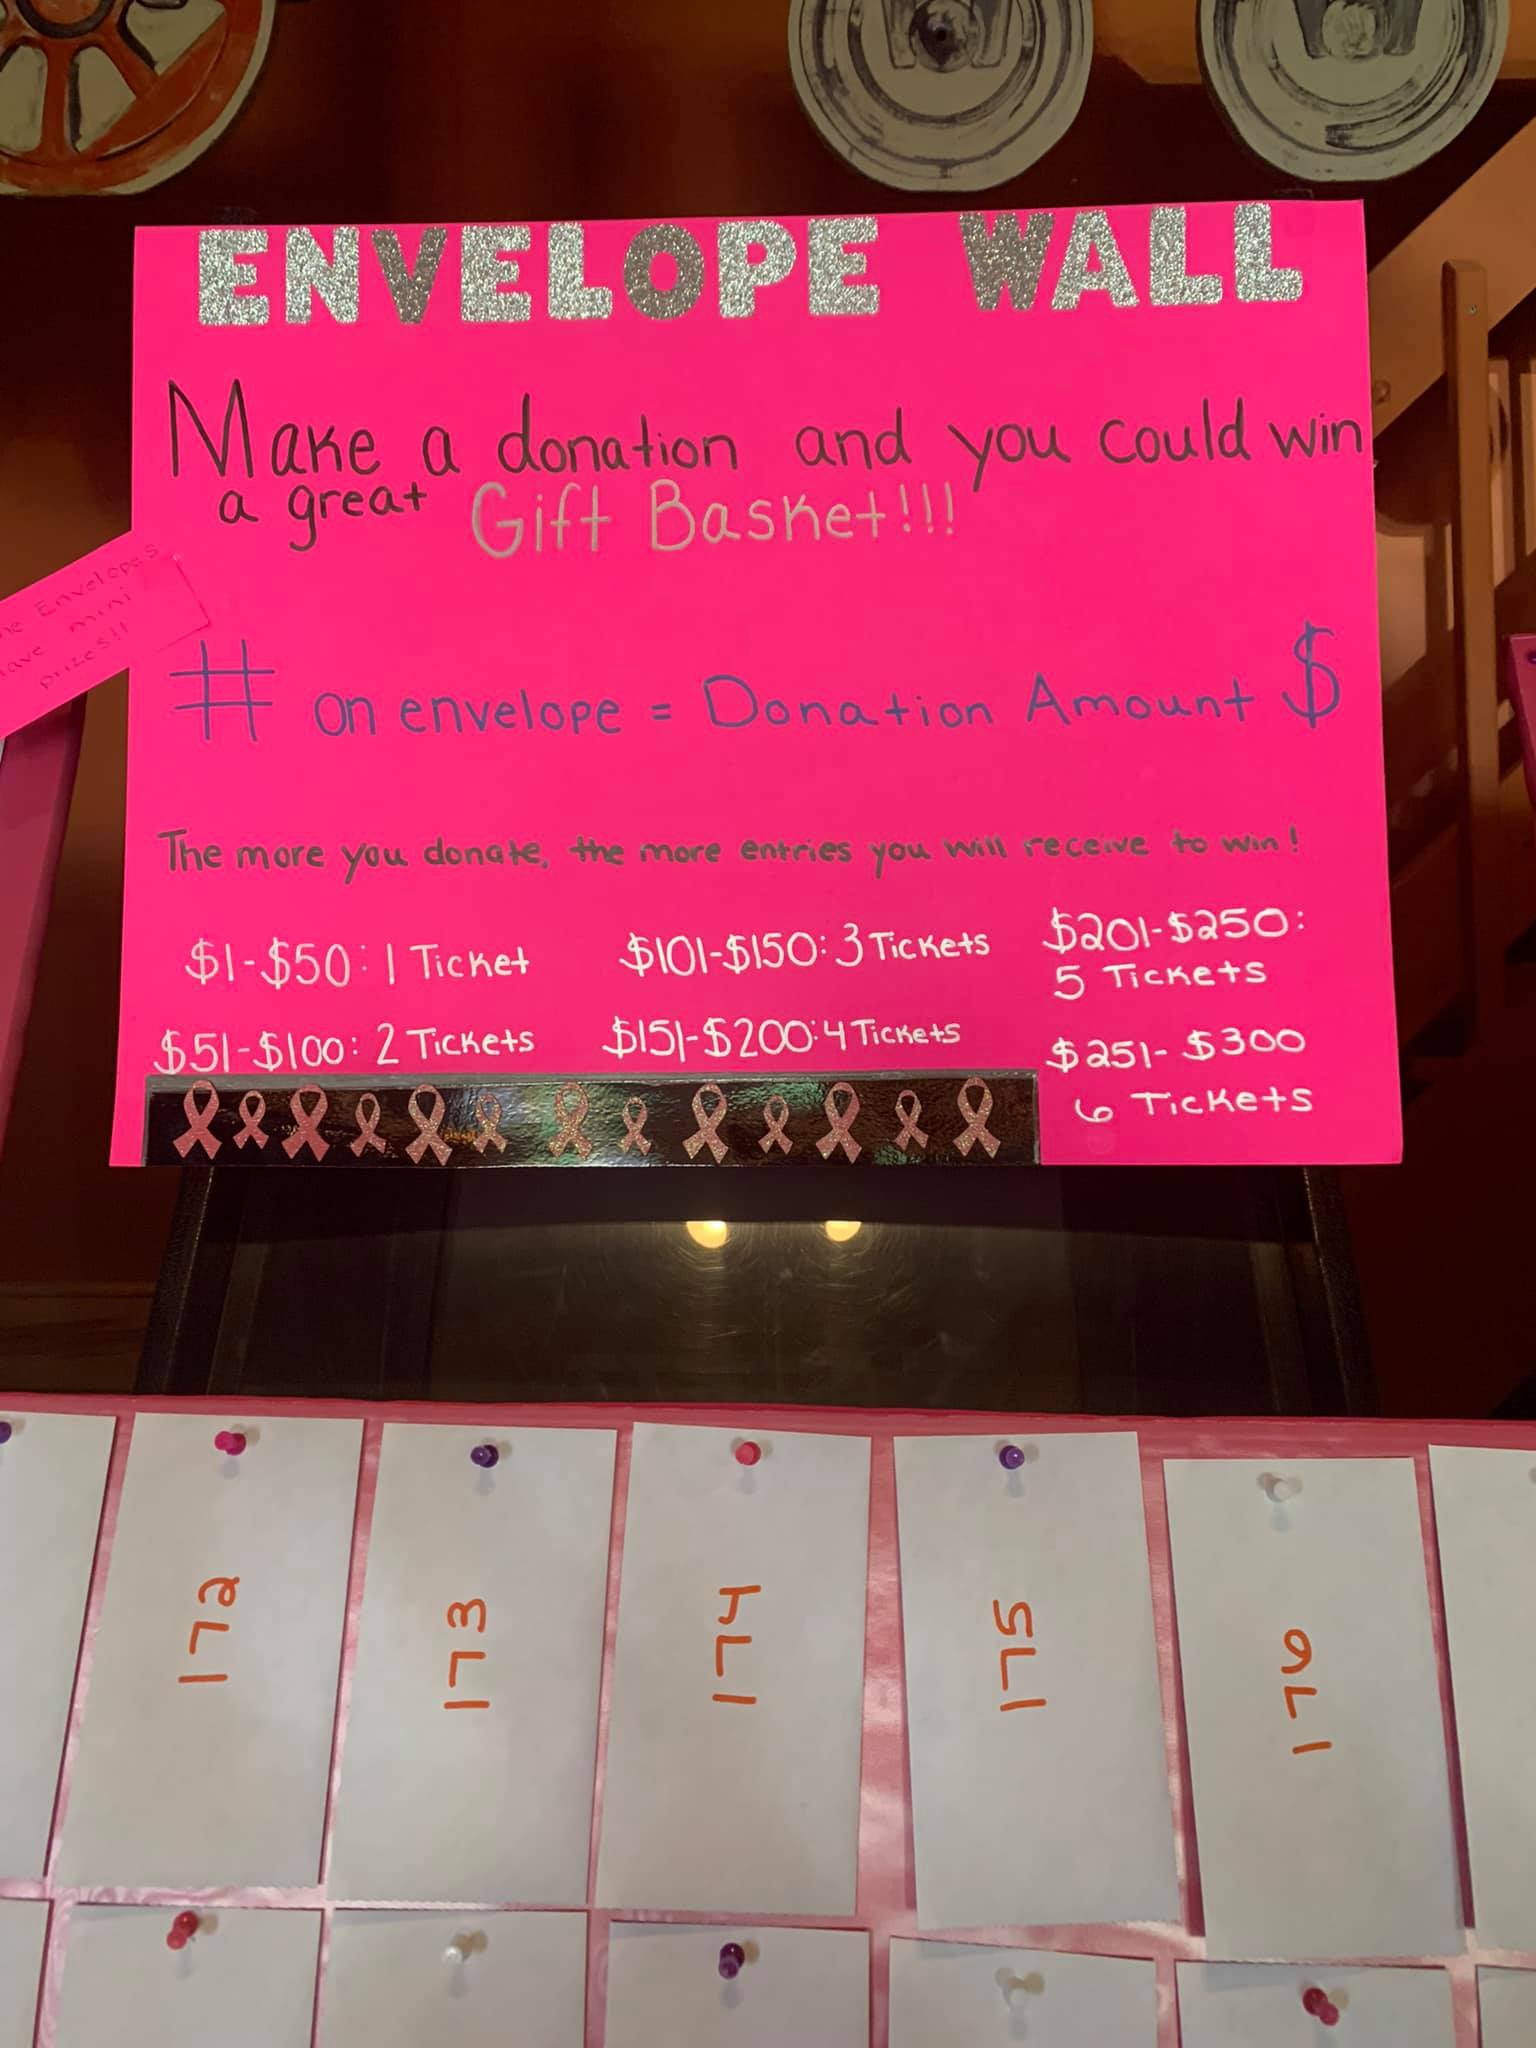 ENVELOPE WALL
Make a donation and you could win
a great Gift Basket!!!
Envelopes
mini
prizes!!
# on envelope = Donation Amount $
The more you donate, the more entries you will receive to win!
$1-$50: 1 Ticket
$51-$100: 2 Tickets
$101-$150: 3 Tickets
$151-$200: 4 Tickets
$201-$250:
5 Tickets
$251-$300
6 Tickets
172
173
174
175
176